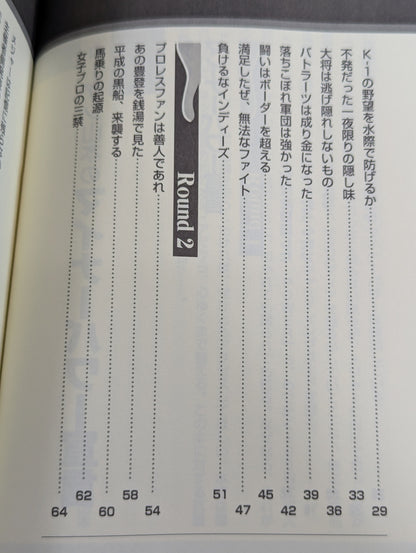 K-1の野望を水際で防げるか 29
不発だった一夜限りの隠し味 33
大将は逃げ隠れしないもの 36
バトラーツは成り金になった 39
落ちこぼれ軍団は強かった 42
闘いはボーダーを超える 45
満足したぜ、無法なファイト 47
負けるなインディーズ 51
Round 2
プロレスファンは善人であれ 54
あの豊登を銭湯で見た 58
平成の黒船、来襲する 60
馬乗りの起源 62
女子プロの三禁 64